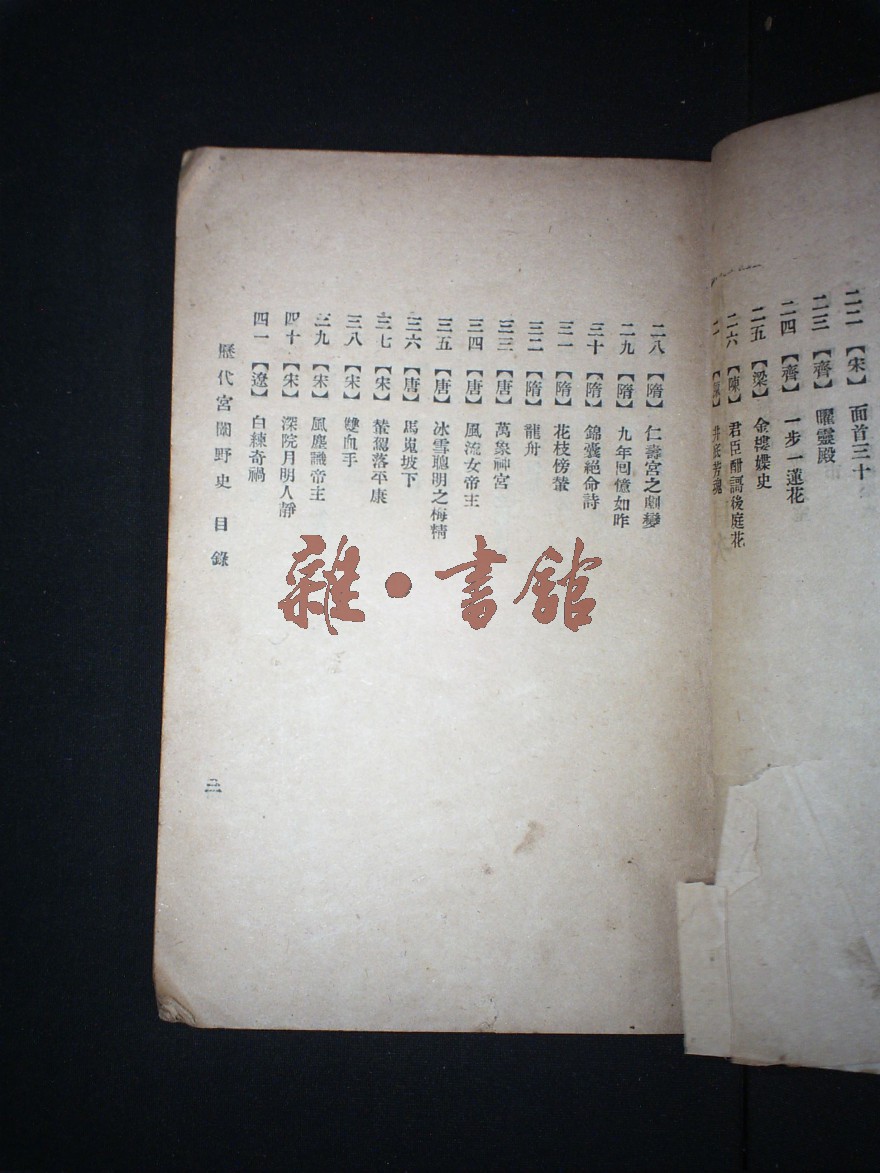 二二【宋】面首三十
二三【齊】曜靈殿
二四【齊】一步一蓮花
二五【梁】金摟媟史
二六【陳】君臣酣謌後庭花
井底芳魂
二八【隋】仁壽宮之劇變
二九【隋】九年回憶如昨
三十【隋】錦囊絕命詩
三一【隋】花枝傍輦
三二【隋】龍舟
三三【唐】萬象神宮
三四【唐】風流女帝主
三五【唐】冰雪聰明之梅精
三六【唐】馬嵬坡下
三七【宋】輦駕落平康
三八【宋】雙血手
三九【宋】風塵識帝主
四十【宋】深院月明人靜
四一【遼】白練奇禍
歷代宮闈野史 目錄
三
雜·書館